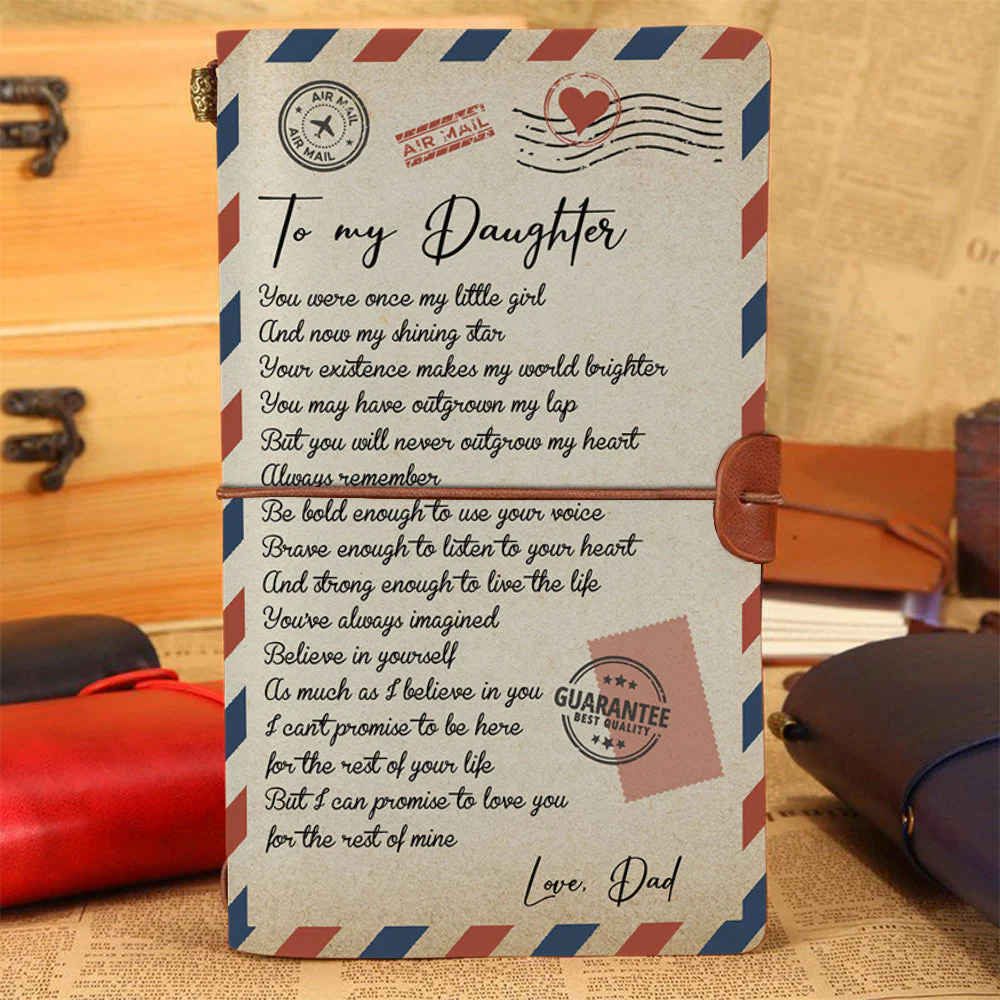 AIR MAIL
AIR MAIL
AIR MAIL
To my Daughter
You were once my little girl
And now my shining star
Your existence makes my world brighter
You may have outgrown my lap
But you will never outgrow my heart
Always remember
Be bold enough to use your voice
Brave enough to listen to your heart
And strong enough to live the life
You've always imagined
Believe in yourself
As much as I believe in you
I can't promise to be here
for the rest of your life
But I can promise to love you
for the rest of mine
GUARANTEE
BEST QUALITY
Love, Dad